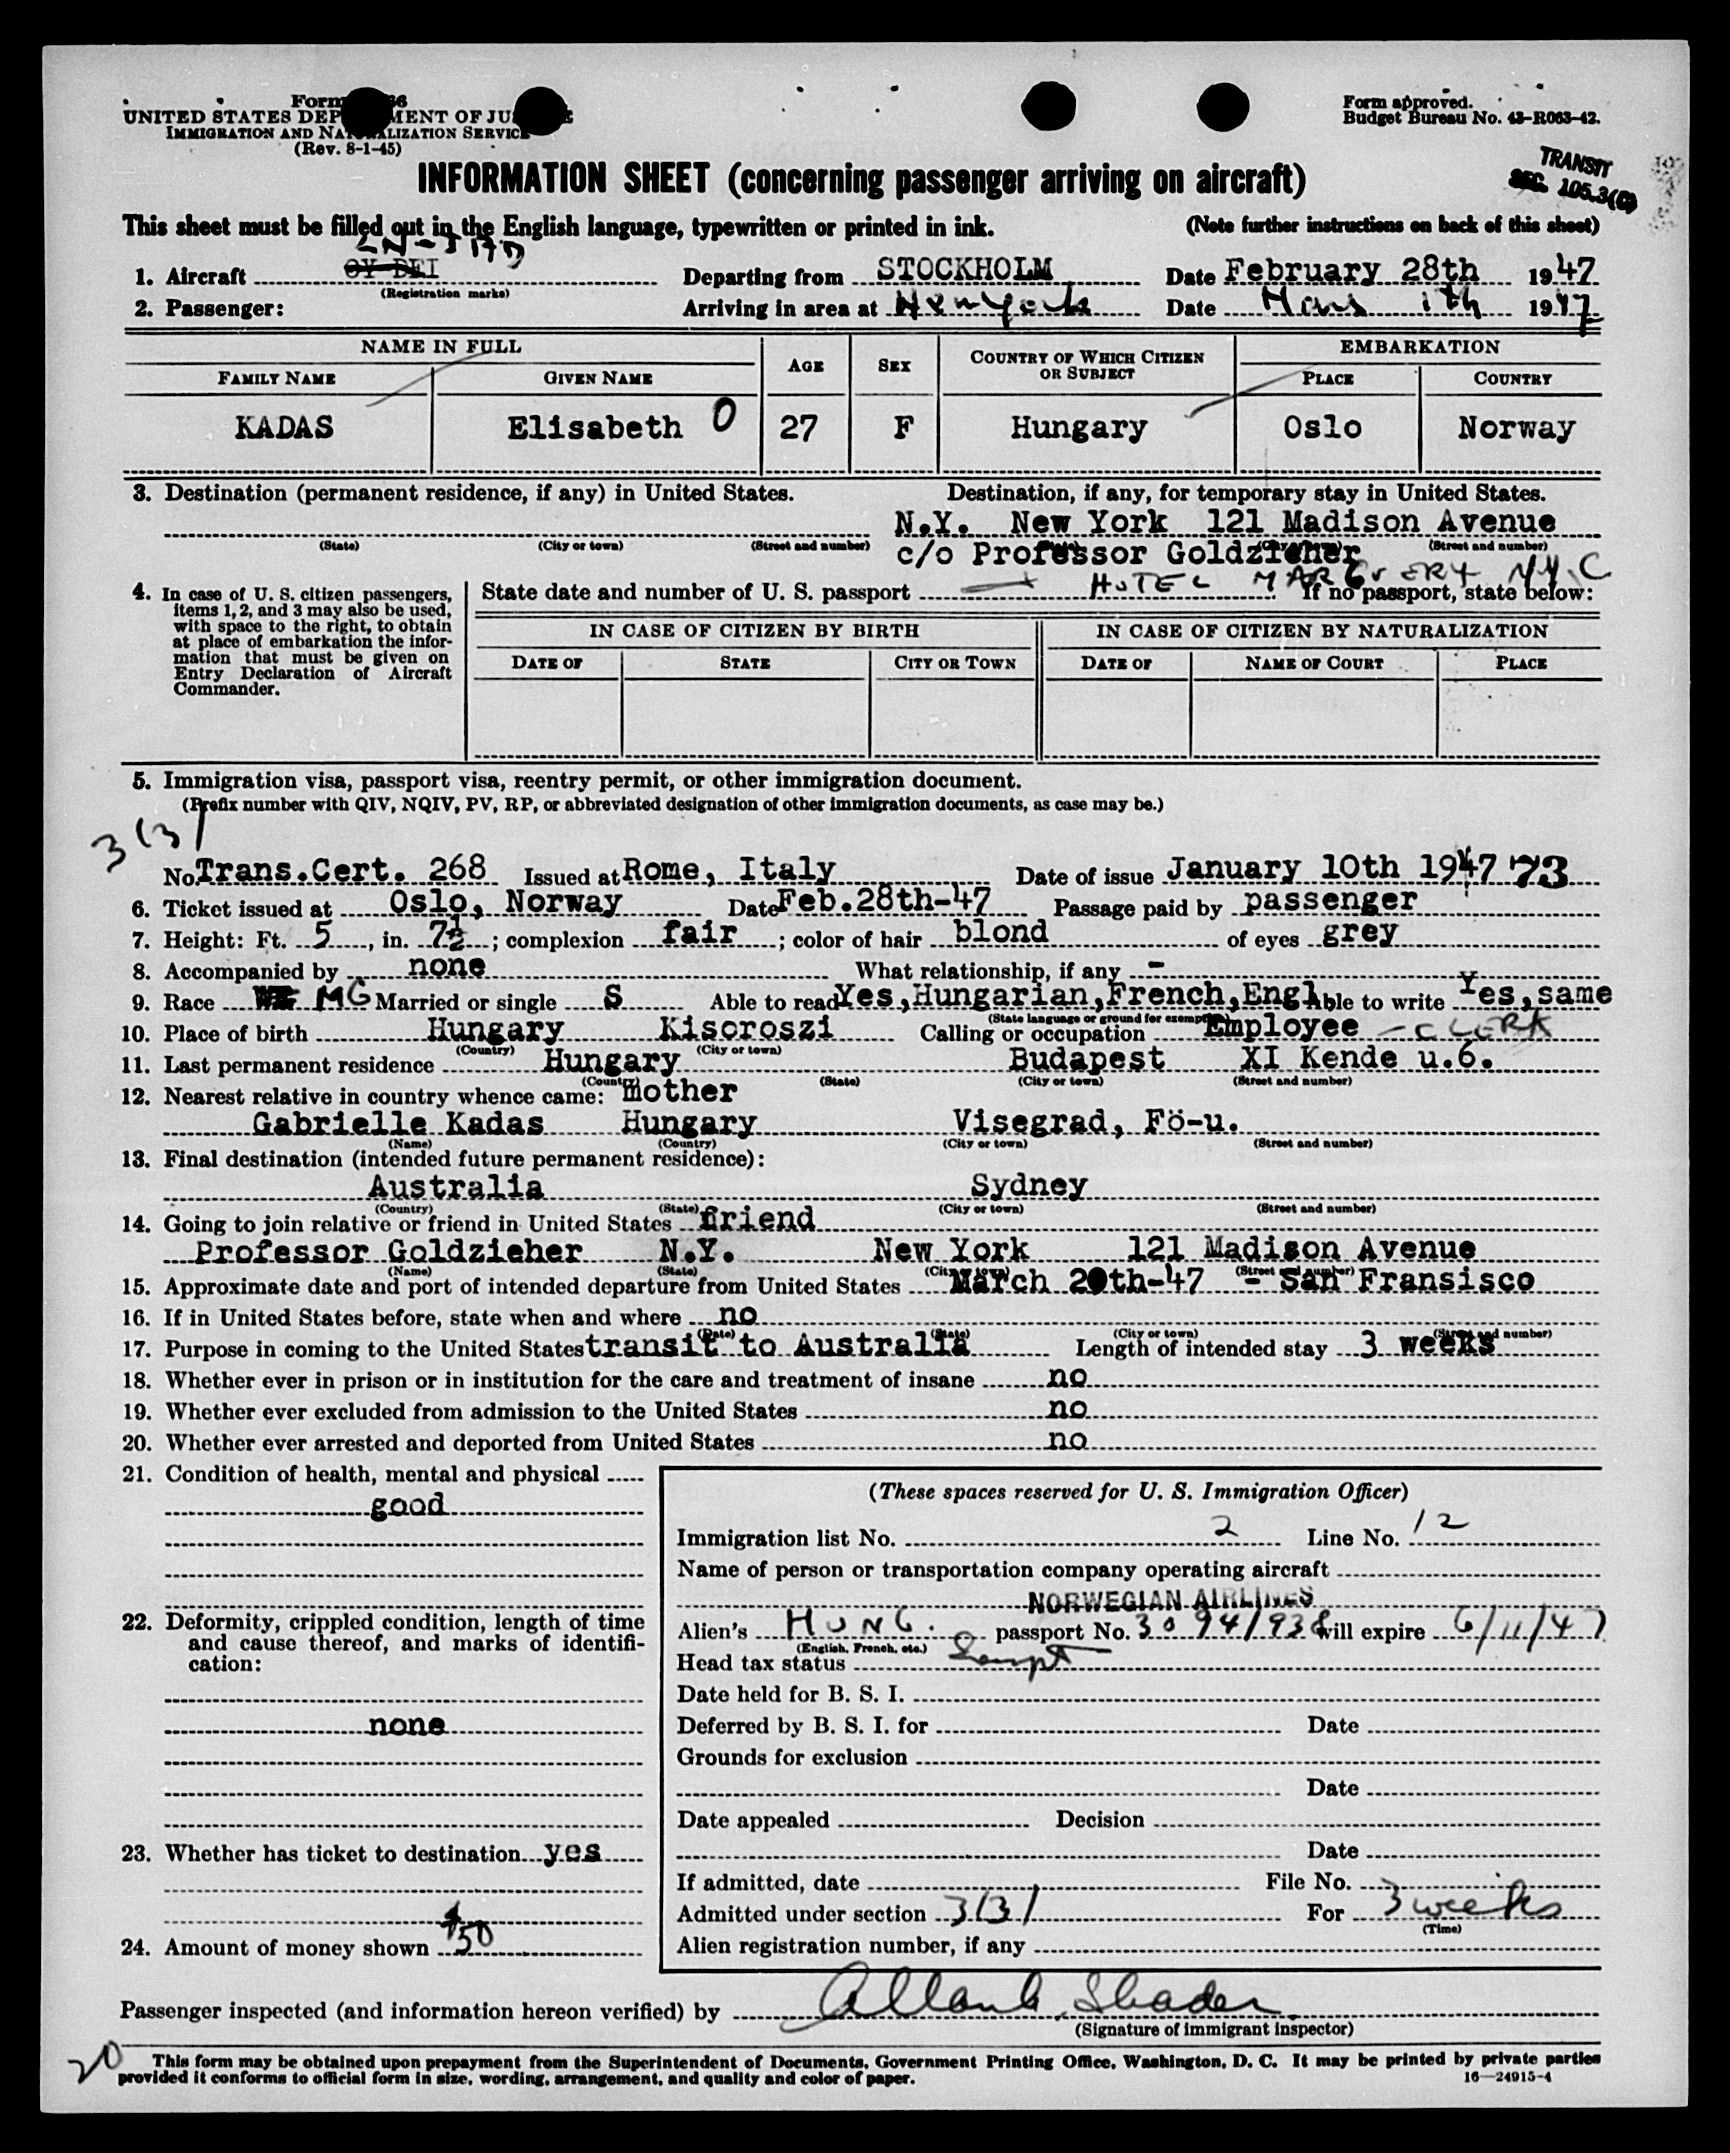 Form 66
UNITED STATES DEPARTMENT OF JUSTICE
IMMIGRATION AND NATURALIZATION SERVICE
(Rev. 8-1-45)
Form approved.
Budget Bureau No. 43-R063-42.
TRANSIT
SEC. 105.3(C)
INFORMATION SHEET (concerning passenger arriving on aircraft)
This sheet must be filled out in the English language, typewritten or printed in ink. (Note further instructions on back of this sheet)
1. Aircraft OY DFI Departing from STOCKHOLM Date February 28th 1947
(Registration marks)
2. Passenger: Arriving in area at New York Date 1947
NAME IN FULL AGE SEX COUNTRY OF WHICH CITIZEN OR SUBJECT EMBARKATION
FAMILY NAME GIVEN NAME PLACE COUNTRY
KADAS Elisabeth 0 27 F Hungary Oslo Norway
3. Destination (permanent residence, if any) in United States. Destination, if any, for temporary stay in United States.
N.Y. New York 121 Madison Avenue
(State) (City or town) (Street and number) (State) (City or town) (Street and number)
c/o Professor Goldzieher
HOTEL MARGUERY N.Y.C
4. In case of U. S. citizen passengers, items 1, 2, and 3 may also be used, with space to the right, to obtain at place of embarkation the information that must be given on Entry Declaration of Aircraft Commander.
State date and number of U. S. passport If no passport, state below:
IN CASE OF CITIZEN BY BIRTH IN CASE OF CITIZEN BY NATURALIZATION
DATE OF STATE CITY OR TOWN DATE OF NAME OF COURT PLACE
5. Immigration visa, passport visa, reentry permit, or other immigration document.
(Prefix number with QIV, NQIV, PV, RP, or abbreviated designation of other immigration documents, as case may be.)
3(3)
No. Trans.Cert. 268 Issued at Rome, Italy Date of issue January 10th 1947 73
6. Ticket issued at Oslo, Norway Date Feb.28th-47 Passage paid by passenger
7. Height: Ft. 5, in. 7½; complexion fair; color of hair blond of eyes grey
8. Accompanied by none What relationship, if any -
9. Race MG Married or single S Able to read Yes,Hungarian,French,Engl. Able to write Yes,same
(State language or ground for exemption)
10. Place of birth Hungary Kisoroszi Calling or occupation Employee - CLERK
(Country) (City or town)
11. Last permanent residence Hungary Budapest XI Kende u.6.
(Country) (State) (City or town) (Street and number)
12. Nearest relative in country whence came: mother
Gabrielle Kadas Hungary Visegrad, Fö-u.
(Name) (Country) (City or town) (Street and number)
13. Final destination (intended future permanent residence):
Australia Sydney
(Country) (State) (City or town) (Street and number)
14. Going to join relative or friend in United States friend
Professor Goldzieher N.Y. New York 121 Madison Avenue
(Name) (State) (City or town) (Street and number)
15. Approximate date and port of intended departure from United States March 20th-47 - San Fransisco
16. If in United States before, state when and where no
(Date) (State) (City or town) (Street and number)
17. Purpose in coming to the United States transit to Australia Length of intended stay 3 weeks
18. Whether ever in prison or in institution for the care and treatment of insane no
19. Whether ever excluded from admission to the United States no
20. Whether ever arrested and deported from United States no
21. Condition of health, mental and physical
good
22. Deformity, crippled condition, length of time and cause thereof, and marks of identification:
none
23. Whether has ticket to destination yes
24. Amount of money shown $50
(These spaces reserved for U. S. Immigration Officer)
Immigration list No. 2 Line No. 12
Name of person or transportation company operating aircraft
NORWEGIAN AIRLINES
Alien's HUNG. passport No. 3094/938 will expire 6/11/47
(English, French, etc.)
Head tax status
Date held for B. S. I.
Deferred by B. S. I. for Date
Grounds for exclusion
Date
Date appealed Decision
Date
If admitted, date File No.
Admitted under section 3(3) For 3 weeks
(Time)
Alien registration number, if any
Passenger inspected (and information hereon verified) by
(Signature of immigrant inspector)
20
This form may be obtained upon prepayment from the Superintendent of Documents, Government Printing Office, Washington, D. C. It may be printed by private parties
provided it conforms to official form in size, wording, arrangement, and quality and color of paper.
16—24915-4